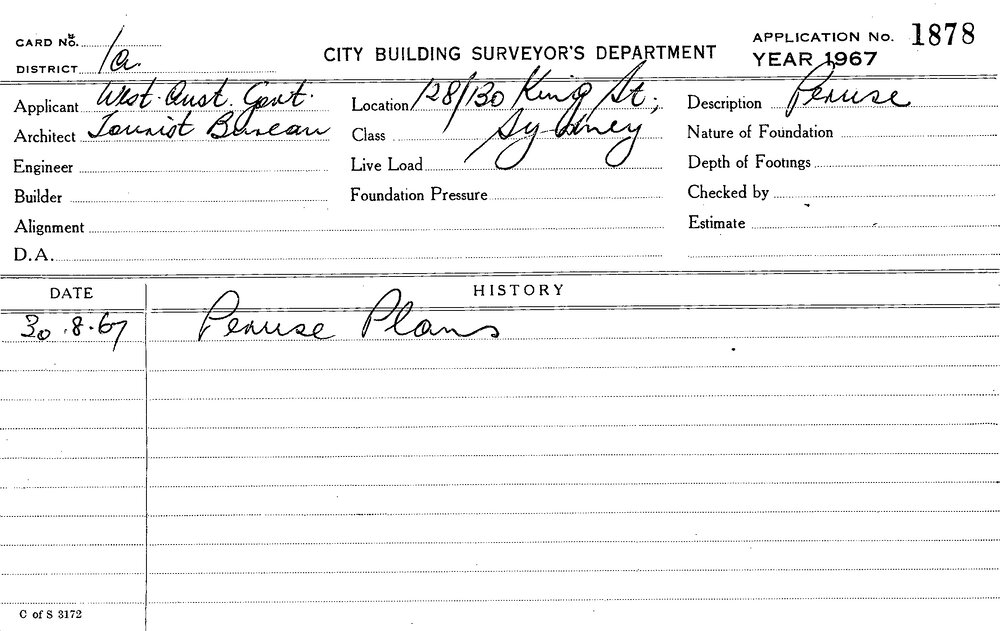 CARD NO.
DISTRICT 1a.
CITY BUILDING SURVEYOR'S DEPARTMENT
APPLICATION No. 1878
YEAR 1967
Applicant West. Aust. Govt.
Architect Tourist Bureau
Engineer
Builder
Alignment
D.A.
Location 128/130 King St,
Class Sydney
Live Load
Foundation Pressure
Description Peruse
Nature of Foundation
Depth of Footings
Checked by
Estimate
DATE HISTORY
30.8.67 Peruse Plans
C of S 3172